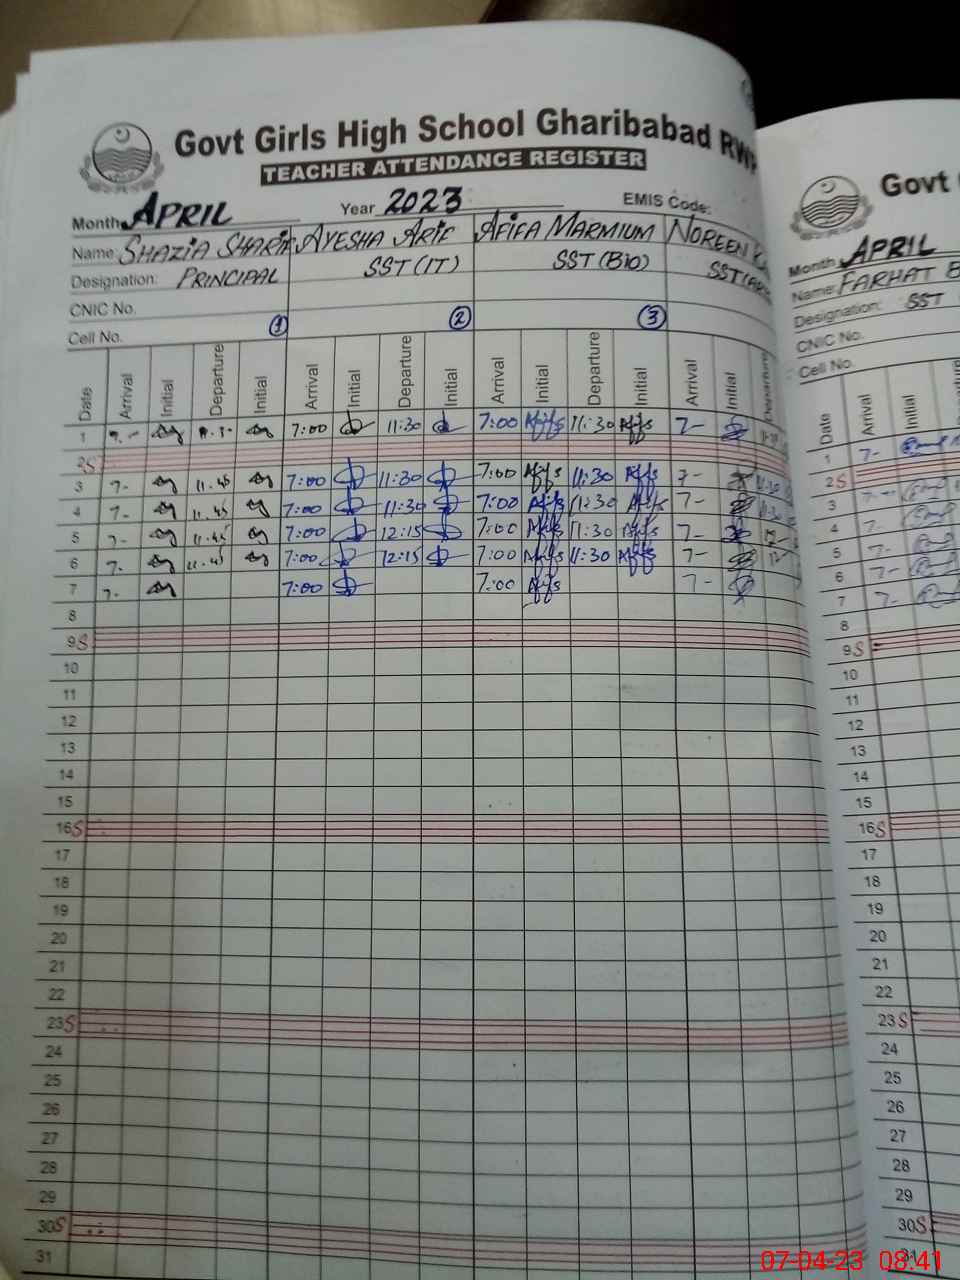 Govt Girls High School Gharibabad RWP
TEACHER ATTENDANCE REGISTER
Month APRIL Year 2023 EMIS Code:
Name: SHAZIA SHARIF AYESHA ARIF AFIFA MARMIUM NOREEN
Designation: PRINCIPAL SST (IT) SST (BIO)
CNIC No.
Cell No. 1 2 3
Date Arrival Initial Departure Initial Arrival Initial Departure Initial Arrival Initial Departure Initial Arrival Initial Departure
1 7:00 11:30 7:00 11:30 7-
2 S
3 7- 11.45 7:00 11:30 7:00 11:30 7- 11:30
4 7- 11.45 7:00 11:30 7:00 11:30 7- 11:30
5 7- 11.45 7:00 12:15 7:00 11:30 7-
6 7- 11.45 7:00 12:15 7:00 11:30 7-
7 7- 7:00 7:00 7-
8
9 S
10
11
12
13
14
15
16 S
17
18
19
20
21
22
23 S
24
25
26
27
28
29
30 S
31
Govt
Month APRIL
Name: FARHAT
Designation: SST
CNIC No.
Cell No.
Date Arrival Initial
1 7-
2 S
3
4 7-
5 7-
6 7-
7 7-
8
9 S
10
11
12
13
14
15
16 S
17
18
19
20
21
22
23 S
24
25
26
27
28
29
30 S
31
07-04-23 08:41